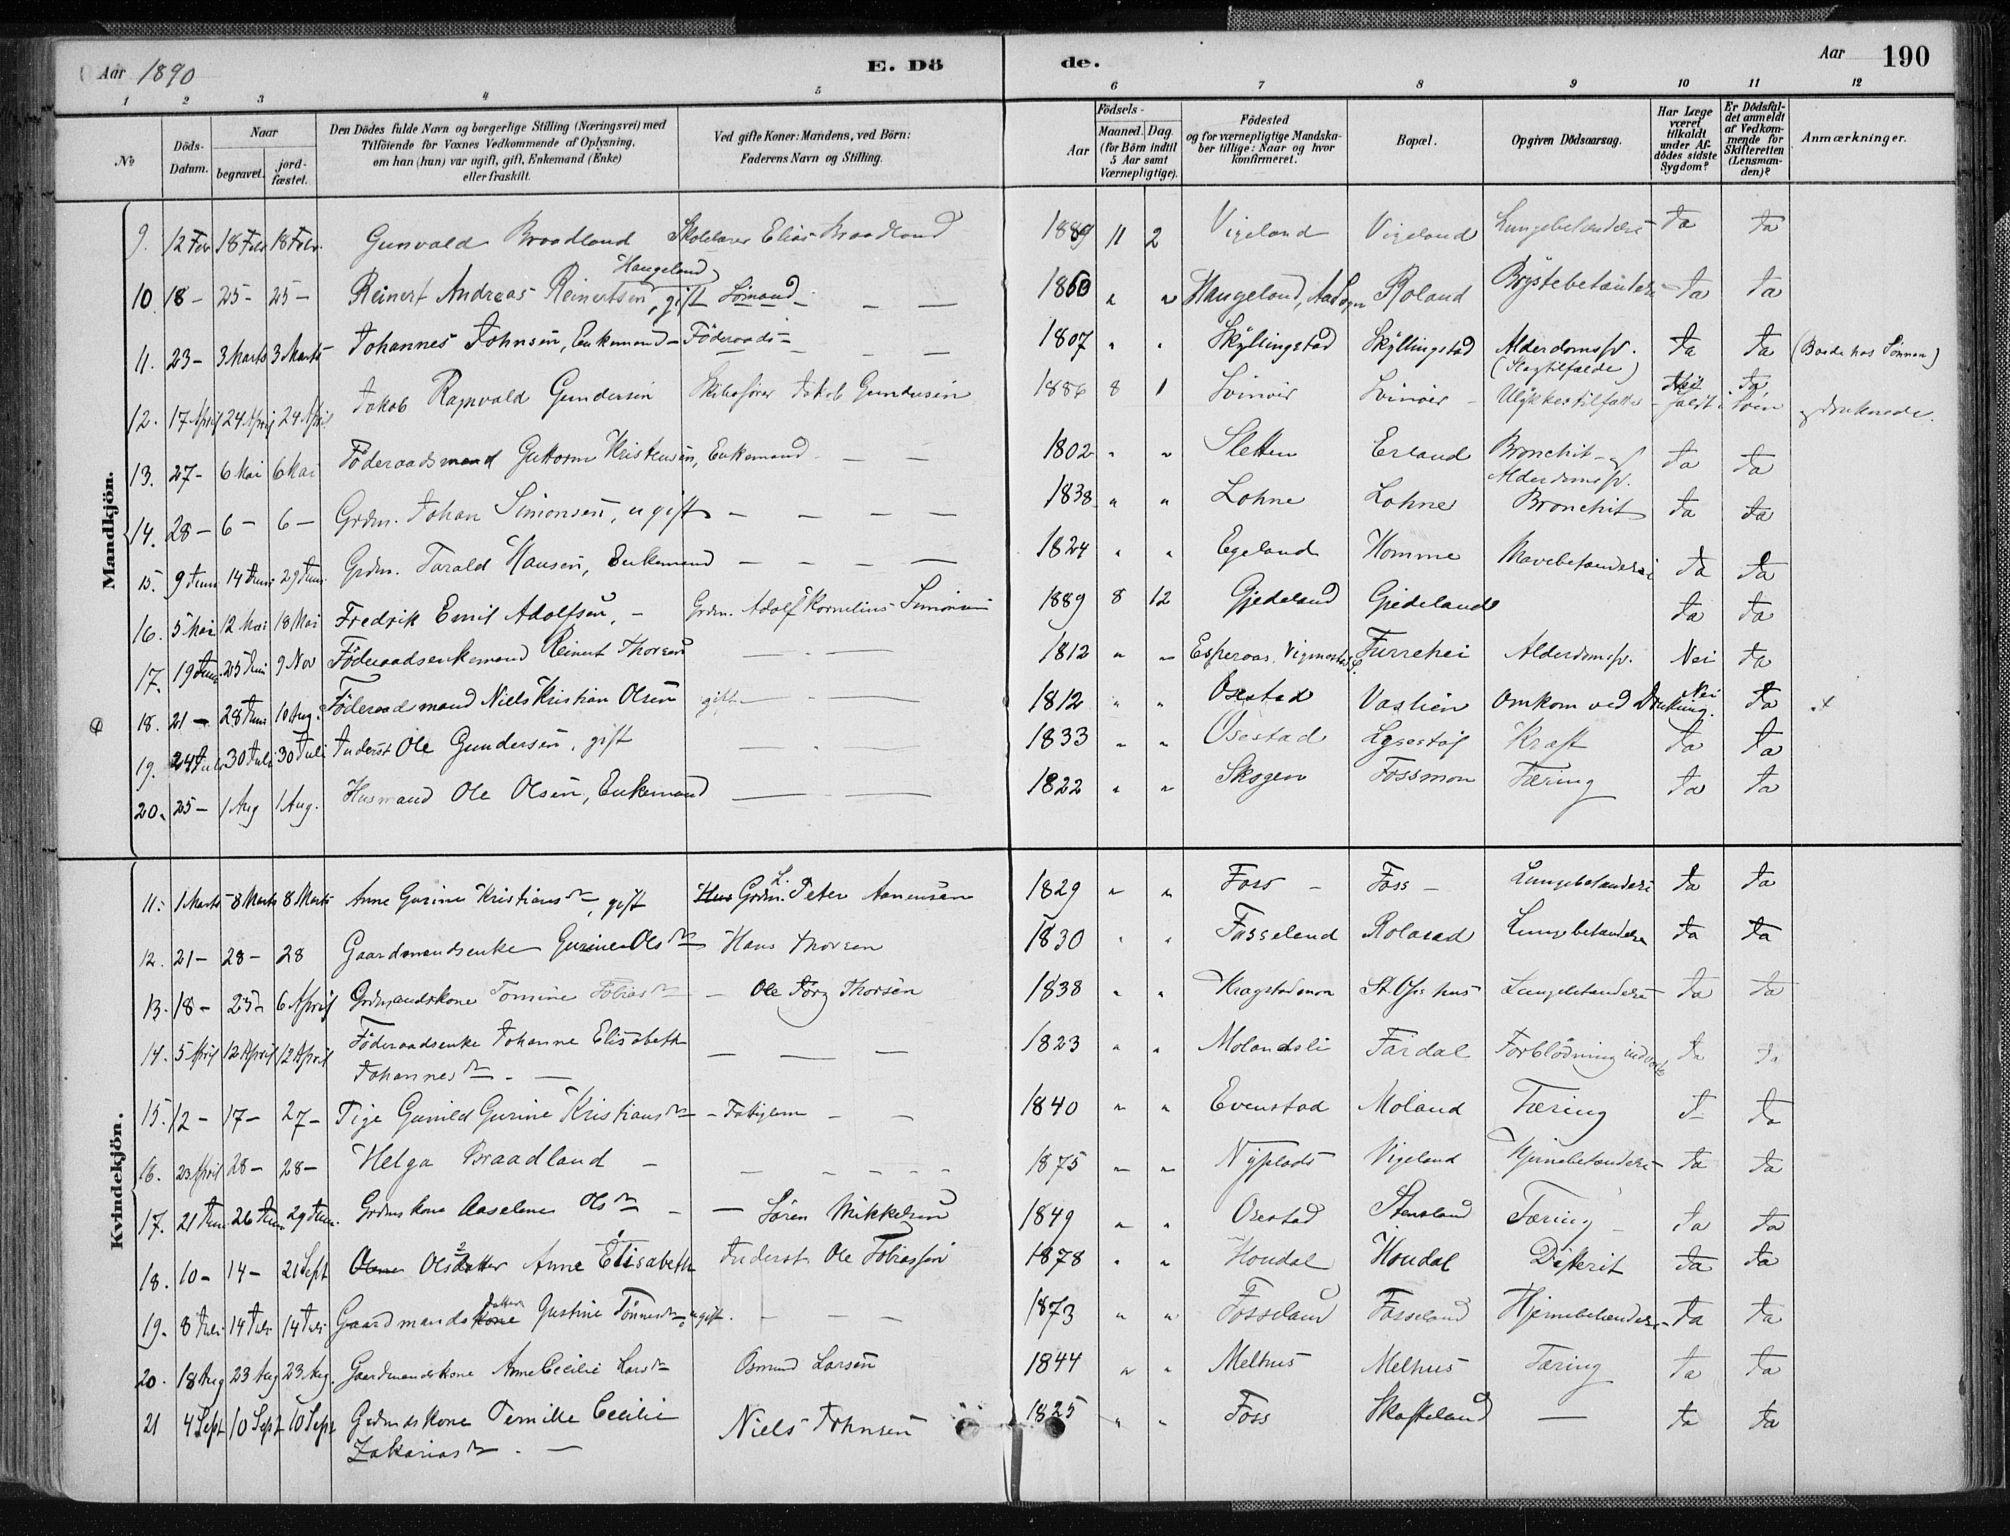 Aar 1890 E. Dö de. Aar 190
1 2 3 4 5 6 7 8 9 10 11 12
No Döds-Datum. Naar begravet. jord-fæstet. Den Dödes fulde Navn og borgerlige Stilling (Næringsvei) med Tilföiende for Voxnes Vedkommende af Oplysning, om han (hun) var ugift, gift, Enkemand (Enke) eller fraskilt. Ved gifte Koner: Mandens, ved Börn: Faderens Navn og Stilling. Födsels- Aar Maaned. Dag. (for Börn indtil 5 Aar samt Værnepligtige). Födested og for værnepligtige Mandska-ber tillige: Naar og hvor konfirmeret. Bopæl. Opgiven Dödsaarsag. Har Læge været tilkaldt under Af-dödes sidste Sygdom? Er Dödsfal-det anmeldt af Vedkom-mende for Skifteretten (Lensman-den)? Anmærkninger.
Mandkjön.
9. 12 Febr 18 Febr 18 Febr. Gunvald Braadland Skolelærer Elias Braadland 1889 11 2 Vigeland Vigeland Lungebetændelse Ja Ja
10. 18 - 25 - 25 - Reinert Andreas Reinertsen Haugeland, gift Sömand - - - 1860 " " Haugeland, Aa Sogn Roland Brystebetændelse Ja Ja
11. 23 - 3 Marts 3 Marts Johannes Johnsen, Enkemand - Föderaads - 1807 " " Skyllingstad Skyllingstad Alderdomssv. (Slagtilfælde) Ja Ja (Boede hos Sönnen)
12. 17 April 24 April 24 April Jakob Ragnvald Gundersen Skibsförer Jakob Gundersen 1886 8 1 Svinör Svinör - Ulykkestilfælde - Nei Faldt i Ja Söen og druknede.
13. 27 - 6 Mai 6 Mai Föderaadsmand Guttorm Kristensen, Enkemand - - 1802 " " Sletten Erland Bronchit og Alderdomssv. Ja Ja
14. 28 - 6 - 6 - Grdm. Johan Simonsen, ugift - - - - 1838 " " Lohne Lohne Bronchit Ja Ja
15. 9 Juni 14 Juni 29 Juni Grdm. Tarald Hansen, Enkemand - - - - 1824 " " Egeland Homme Mavebetændelse Ja Ja
16. 5 Mai 12 Mai 18 Mai Fredrik Emil Adolfsen, - Grdm. Adolf Kornelius Simonsen 1889 8 12 Gjedeland Gjedeland Ja Ja
17. 19 Juni 25 Juni 9 Nov Föderaadsenkemand Reinert Thorsen - - - 1812 " " Esperaas, Vigmostad Furrehei Alderdomssv. Nei Ja
18. 21 - 28 Juni 10 Aug. Föderaadsmand Niels Kristian Olsen gift - - 1812 " " Osestad Vaslien Omkom ved Drukning. Nei Ja
19. 24 Juli 30 Juli 30 Juli Inderst Ole Gundersen, gift - - - 1833 " " Osestad Kræft Ja Ja
20. 25 - 1 Aug 1 Aug. Husmand Ole Olsen, Enkemand - - 1822 " " Skogen Fossmon Tæring Ja Ja
Kvindekjön.
11. 1 Marts 8 Marts 8 Marts Anne Gurine Kristiansdr, gift Hus Grdm. L. Peter Aanensen 1829 " " Foss - Foss - Lungebetændelse Ja Ja
12. 21 - 28 - 28 Gaardmandsenke Gurine Olsdr Hans Thorsen 1830 " " Fosseland Lungebetændelse Ja Ja
13. 18 - 25 - 6 April Grdmandskone Tomine Tobiasdr - Ole Jörg Thorsen 1838 " " Kragstadmon Lungebetændelse Ja Ja
14. 5 April 12 April 12 April Föderaadsenke Johanne Elisabeth Johannesdr. - - - - 1823 " " Molandsli Færdal Forblödning indvortes Ja Ja
15. 12 - 17 - 27 - Pige Gunild Gurine Kristiansdr - Fattiglem - - 1840 " " Evenstad Moland Tæring J Ja
16. 23 April 28 - 28 - Helga Braadland - - - - - - 1875 " " Nyplads Vigeland Hjernebetændelse Ja Ja
17. 21 Juni 26 Juni 29 Juni. Grdmskone Aaselene Olsdr - - Sören Mikkelsen 1849 " " Osestad Stensland Tæring - Ja Ja
18. 10 - 14 - 21 Sept Olsdatter Anne Elisabeth Inderst Ole Tobiassen 1878 " " Houdal Houdal Difterit Ja Ja
19. 8 Juli 14 Juli 14 Juli Gaardmandskone datter Gustine Tönnesdr, ugift. - - - 1873 " " Fosseland Fosseland Hjernebetændelse Ja Ja
20. 18 Aug 23 Aug 23 Aug. Gaardmandskone Anne Cecilie Larsdr Osmund Larsen 1844 " " Melhus Melhus Tæring Ja Ja
21 4 Sept 10 Sept 10 Sept Grdmdskone Pernille Cecilie Zakariasdr. - Niels Johnsen 1825 " " Foss Skofteland - Ja Ja